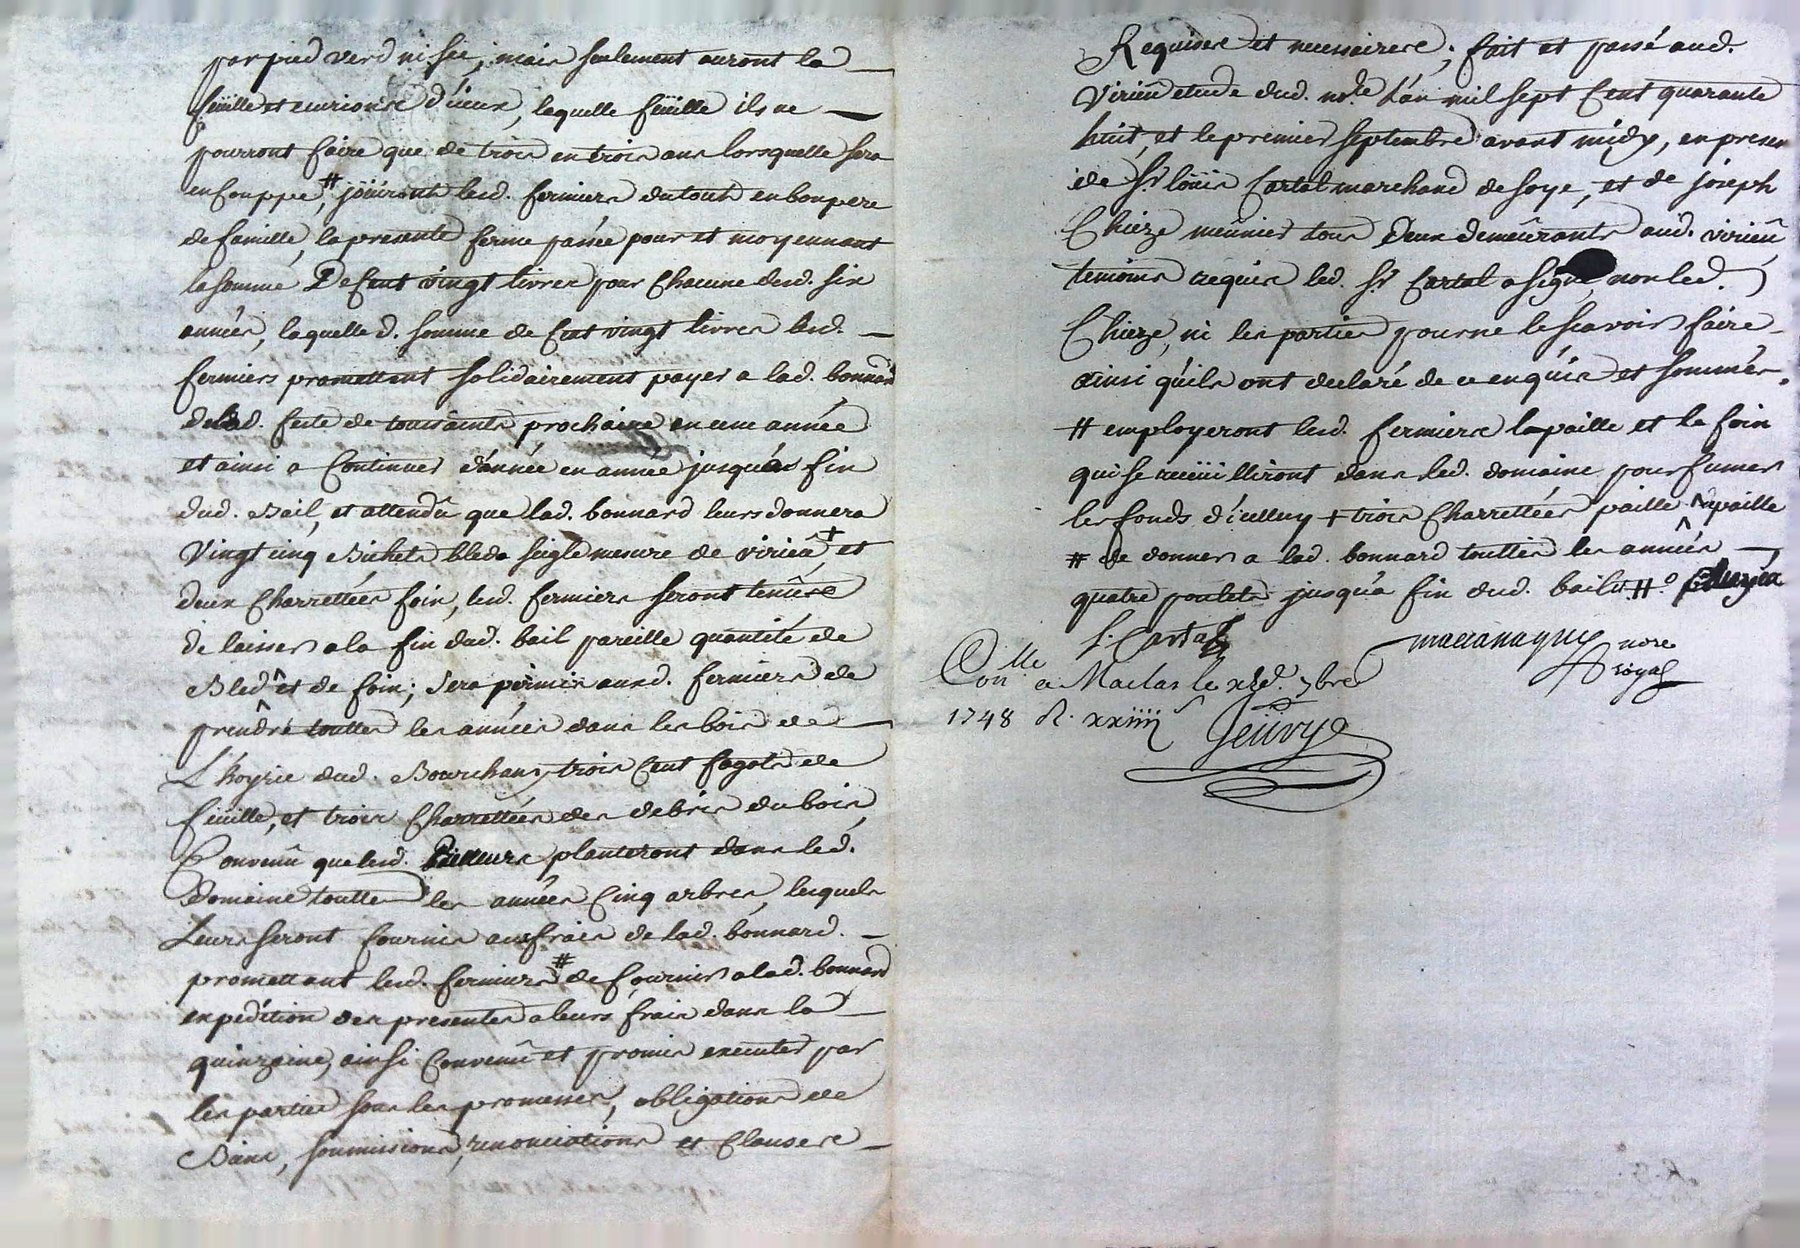 par pied verd ni sec, mais seulement auront la
feüille et d'iceux, laquelle feüille ils ne
pourront faire que de trois en trois ans lorsquelle sera
en couppe, # joüiront lesd. fermiers du tout en bon pere
de famille, la presente ferme passée pour et moyennant
la somme De Cent vingt livres pour Chacune desd. six
années, laquelle d. somme de Cent vingt livres lesd.
fermiers promettent solidairement payer a lad. bonnard
de lad. feste de toussaints prochaine en une année
et ainsi a Continuer d'année en année jusqu'as fin
dud. Bail, et attendû que lad. bonnard leurs donnera
Vingt cinq Bichets bleds seigle mesure de virieû + et
deux Charrettées foin, lesd. fermiers seront tenûs
de laisser a la fin dud. bail pareille quantité de
Bled et de foin; sera permis ausd. fermiers de
prendre touttes les années dans les bois de
L'hoyrie dud. Bourchany trois Cent fagots de
feüille, et trois Charrettées des debris du bois,
Convenû que lesd. planteront dans led.
domaine touttes les années Cinq arbres, lesquels
Leurs seront fournis aux frais de lad. bonnard.
promettant lesd. fermiers # de fournir a lad. bonnard
expedition des presentes a leurs frais dans la
quinzaine, ainsi Convenû et promis executer par
les parties sous les promesses, obligations de
Biens, soumissions, renonciations et Clauses
Requises et necessaires; fait et passé aud.
Virieû etude dud. nore. L'an mil sept Cent quarante
huit, et le premier septembre avant midy, en presen
de Sr. loüis Cartal marchand de soye, et de joseph
Chieze meûnier tous Deux demeûrants aud. virieû
temoins requis led. Sr. Cartal a signé, non led.
Chieze, ni les parties pour ne le scavoir faire
ainsi qu'ils ont declaré de ce enquis et sommés.
# employeront lesd. fermiers la paille et le foin
qui se recüeilliront dans led. domaine pour fumer
les fonds d'icelluy + trois Charrettées paille paille
# de donner a lad. bonnard touttes les années
quatre poulets jusqu'a fin dud. bail
L. Cartal nore
royal
Conlle. a Maclas le 7bre
1748 R. xxiiii s